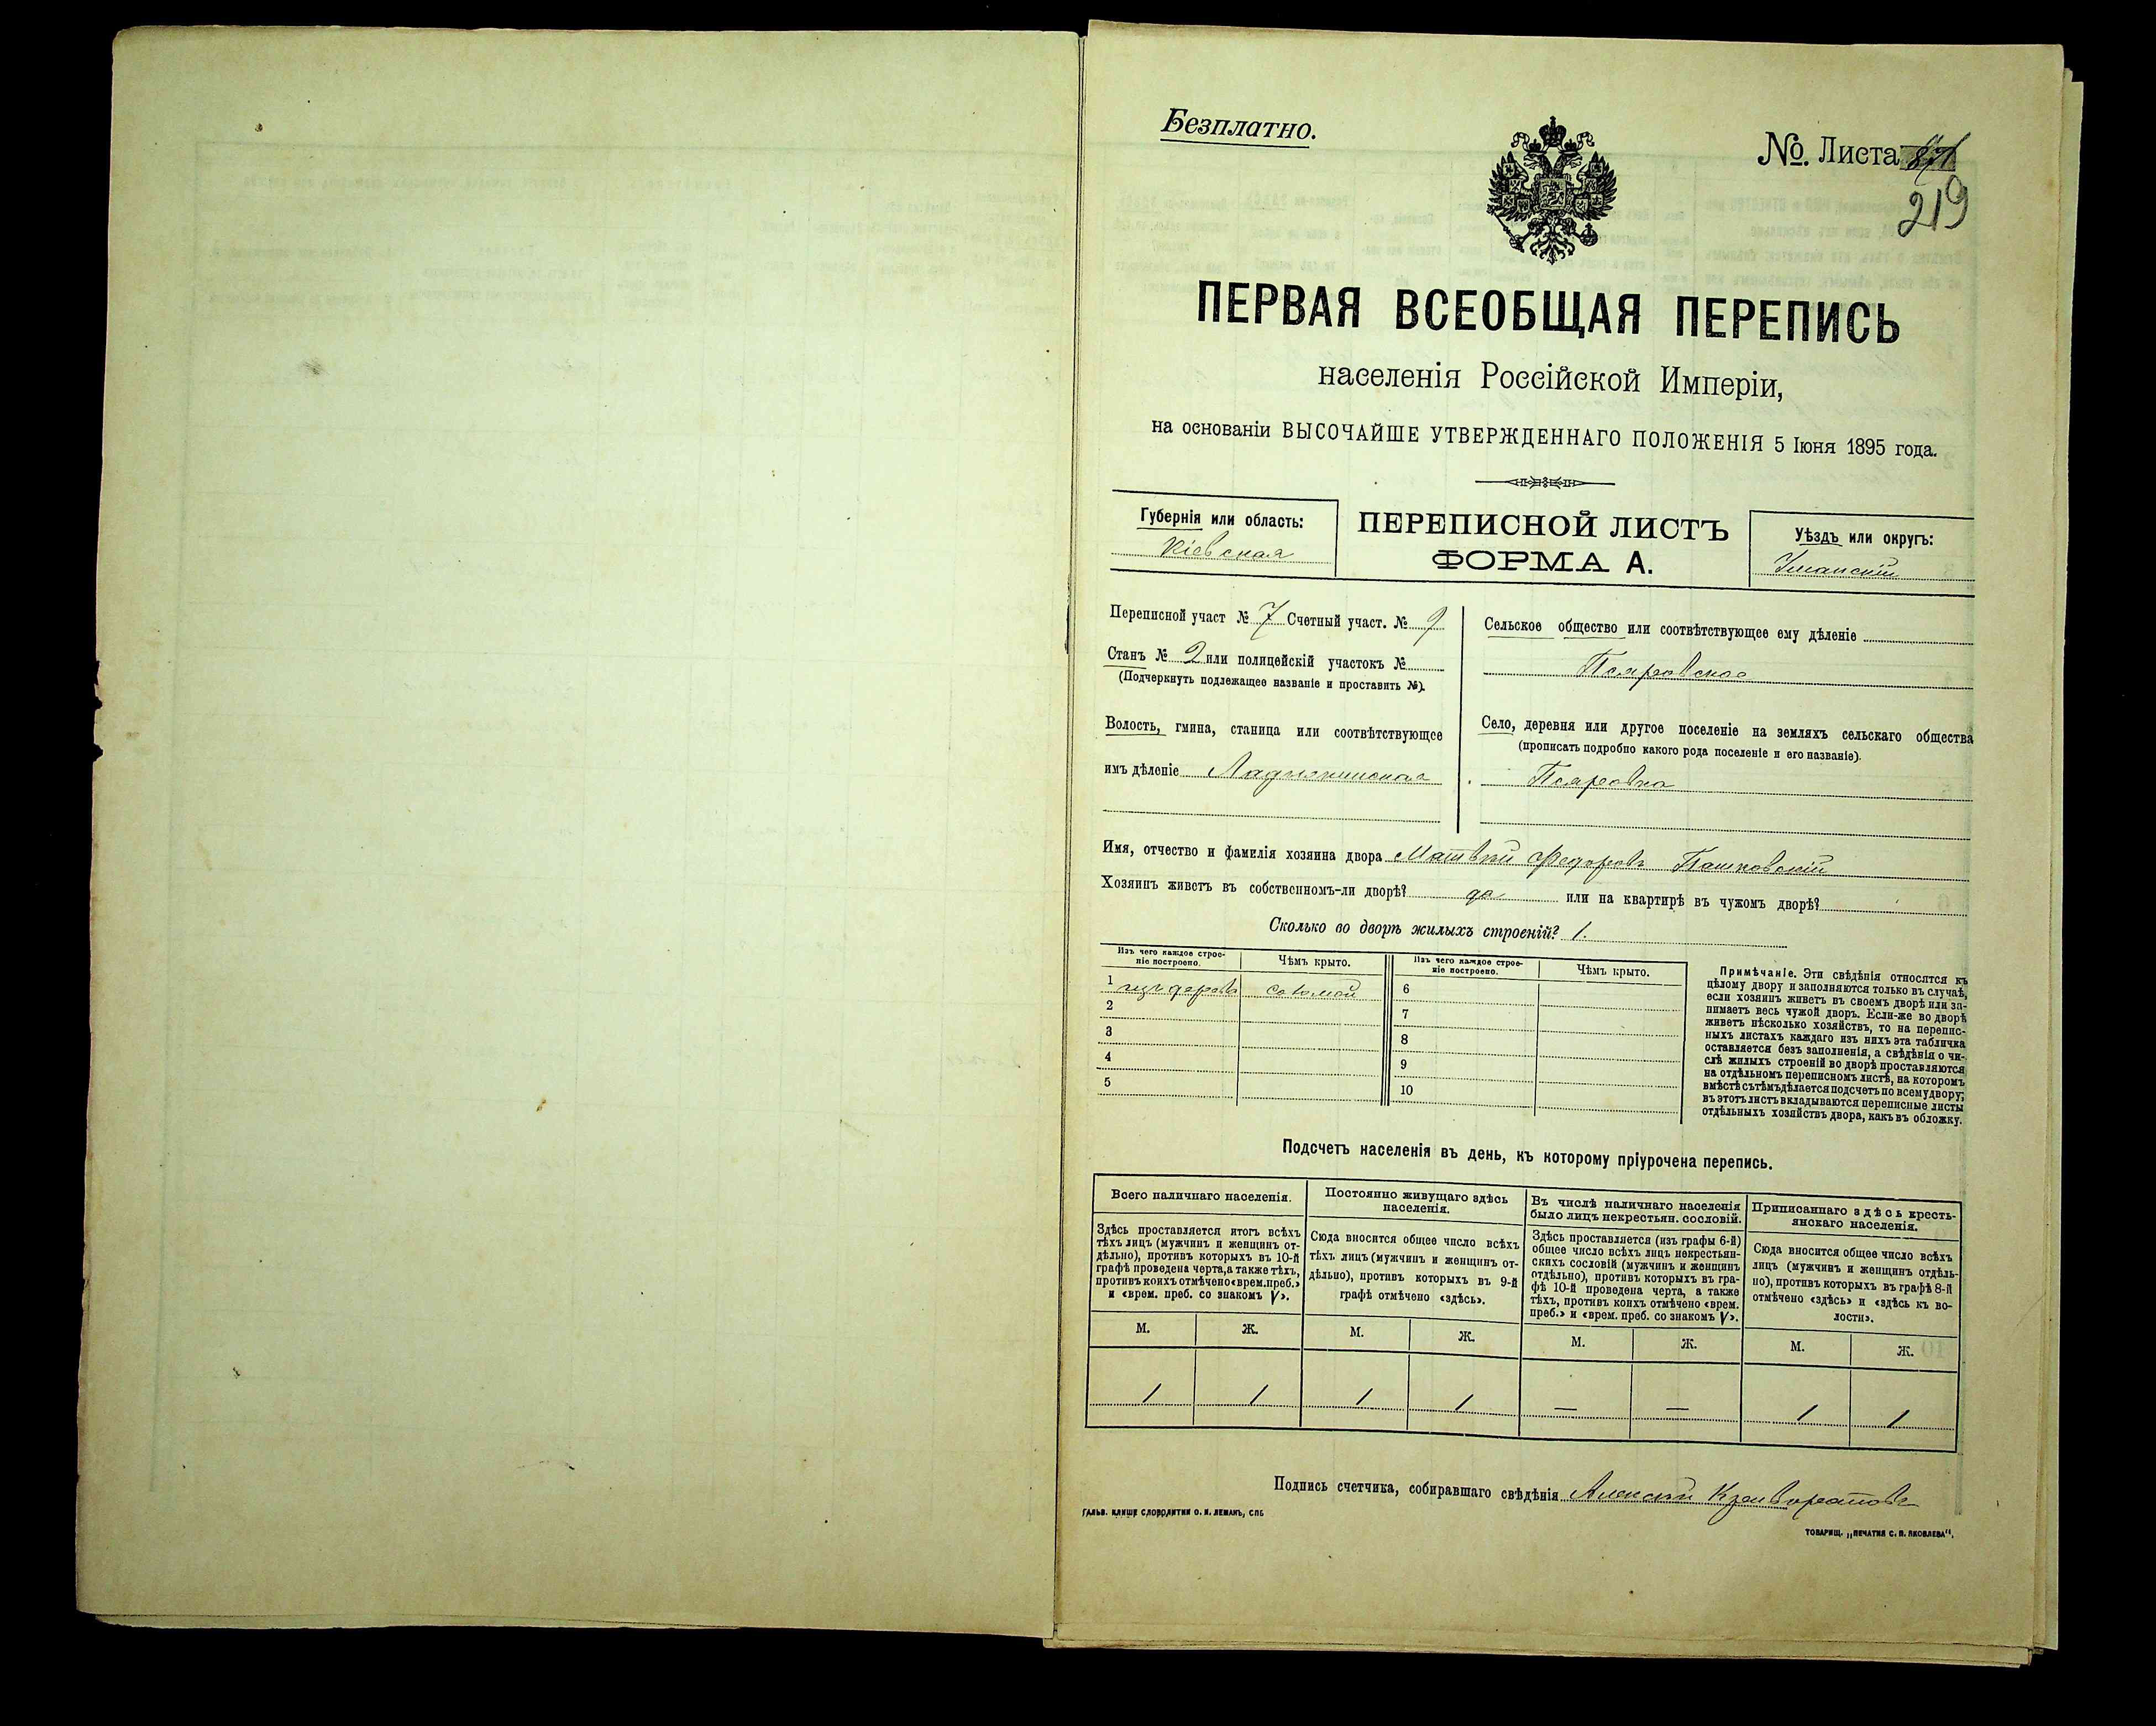 Безплатно.
№. Листа
219
ПЕРВАЯ ВСЕОБЩАЯ ПЕРЕПИСЬ
населенія Россійской Имперіи,
на основаніи ВЫСОЧАЙШЕ УТВЕРЖДЕННАГО ПОЛОЖЕНІЯ 5 Іюня 1895 года.
Губернія или область:
Кіевская
ПЕРЕПИСНОЙ ЛИСТЪ
ФОРМА А.
Уѣздъ или округъ:
Уманскій
Переписной участ № 7 Счетный участ. № 9
Станъ № 2 или полицейскій участокъ №
(Подчеркнуть подлежащее названіе и проставить №).
Волость, гмина, станица или соотвѣтствующее
имъ дѣленіе Ладыжинская
Сельское общество или соотвѣтствующее ему дѣленіе
Псяровское
Село, деревня или другое поселеніе на земляхъ сельскаго общества
(прописать подробно какого рода поселеніе и его названіе).
Псяровка
Имя, отчество и фамилія хозяина двора Матвѣй Федоровъ Пашковскій
Хозяинъ живетъ въ собственномъ-ли дворѣ? да или на квартирѣ въ чужомъ дворѣ?
Сколько во дворѣ жилыхъ строеній? 1.
Изъ чего каждое строе-
ніе построено.
Чѣмъ крыто.
1 изъ дерева соломой
2
3
4
5
Изъ чего каждое строе-
ніе построено.
Чѣмъ крыто.
6
7
8
9
10
Примѣчаніе. Эти свѣдѣнія относятся къ
цѣлому двору и заполняются только въ случаѣ,
если хозяинъ живетъ въ своемъ дворѣ или за-
нимаетъ весь чужой дворъ. Если-же во дворѣ
живетъ нѣсколько хозяйствъ, то на перепис-
ныхъ листахъ каждаго изъ нихъ эта табличка
оставляется безъ заполненія, а свѣдѣнія о чи-
слѣ жилыхъ строеній во дворѣ проставляются
на отдѣльномъ переписномъ листѣ, на которомъ
вмѣстѣ съ тѣмъ дѣлается подсчетъ по всему двору;
въ этотъ листъ вкладываются переписные листы
отдѣльныхъ хозяйствъ двора, какъ въ обложку.
Подсчетъ населенія въ день, къ которому пріурочена перепись.
Всего наличнаго населенія.
Здѣсь проставляется итогъ всѣхъ
тѣхъ лицъ (мужчинъ и женщинъ от-
дѣльно), противъ которыхъ въ 10-й
графѣ проведена черта, а также тѣхъ,
противъ коихъ отмѣчено «врем. преб.»
и «врем. преб. со знакомъ V».
М. Ж.
1 1
Постоянно живущаго здѣсь
населенія.
Сюда вносится общее число всѣхъ
тѣхъ лицъ (мужчинъ и женщинъ от-
дѣльно), противъ которыхъ въ 9-й
графѣ отмѣчено «здѣсь».
М. Ж.
1 1
Въ числѣ наличнаго населенія
было лицъ некрестьян. сословій.
Здѣсь проставляется (изъ графы 6-й)
общее число всѣхъ лицъ некрестьян-
скихъ сословій (мужчинъ и женщинъ
отдѣльно), противъ которыхъ въ гра-
фѣ 10-й проведена черта, а также
тѣхъ, противъ коихъ отмѣчено «врем.
преб.» и «врем. преб. со знакомъ V».
М. Ж.
— —
Приписаннаго здѣсь кресть-
янскаго населенія.
Сюда вносится общее число всѣхъ
лицъ (мужчинъ и женщинъ отдѣль-
но), противъ которыхъ въ графѣ 8-й
отмѣчено «здѣсь» и «здѣсь къ во-
лости».
М. Ж.
1 1
Подпись счетчика, собиравшаго свѣдѣнія Алексѣй
ГАЛЬВ. КЛИШЕ СЛОВОЛИТНИ О. И. ЛЕМАНЪ, СПБ
ТОВАРИЩ. „ПЕЧАТНЯ С. П. ЯКОВЛЕВА".